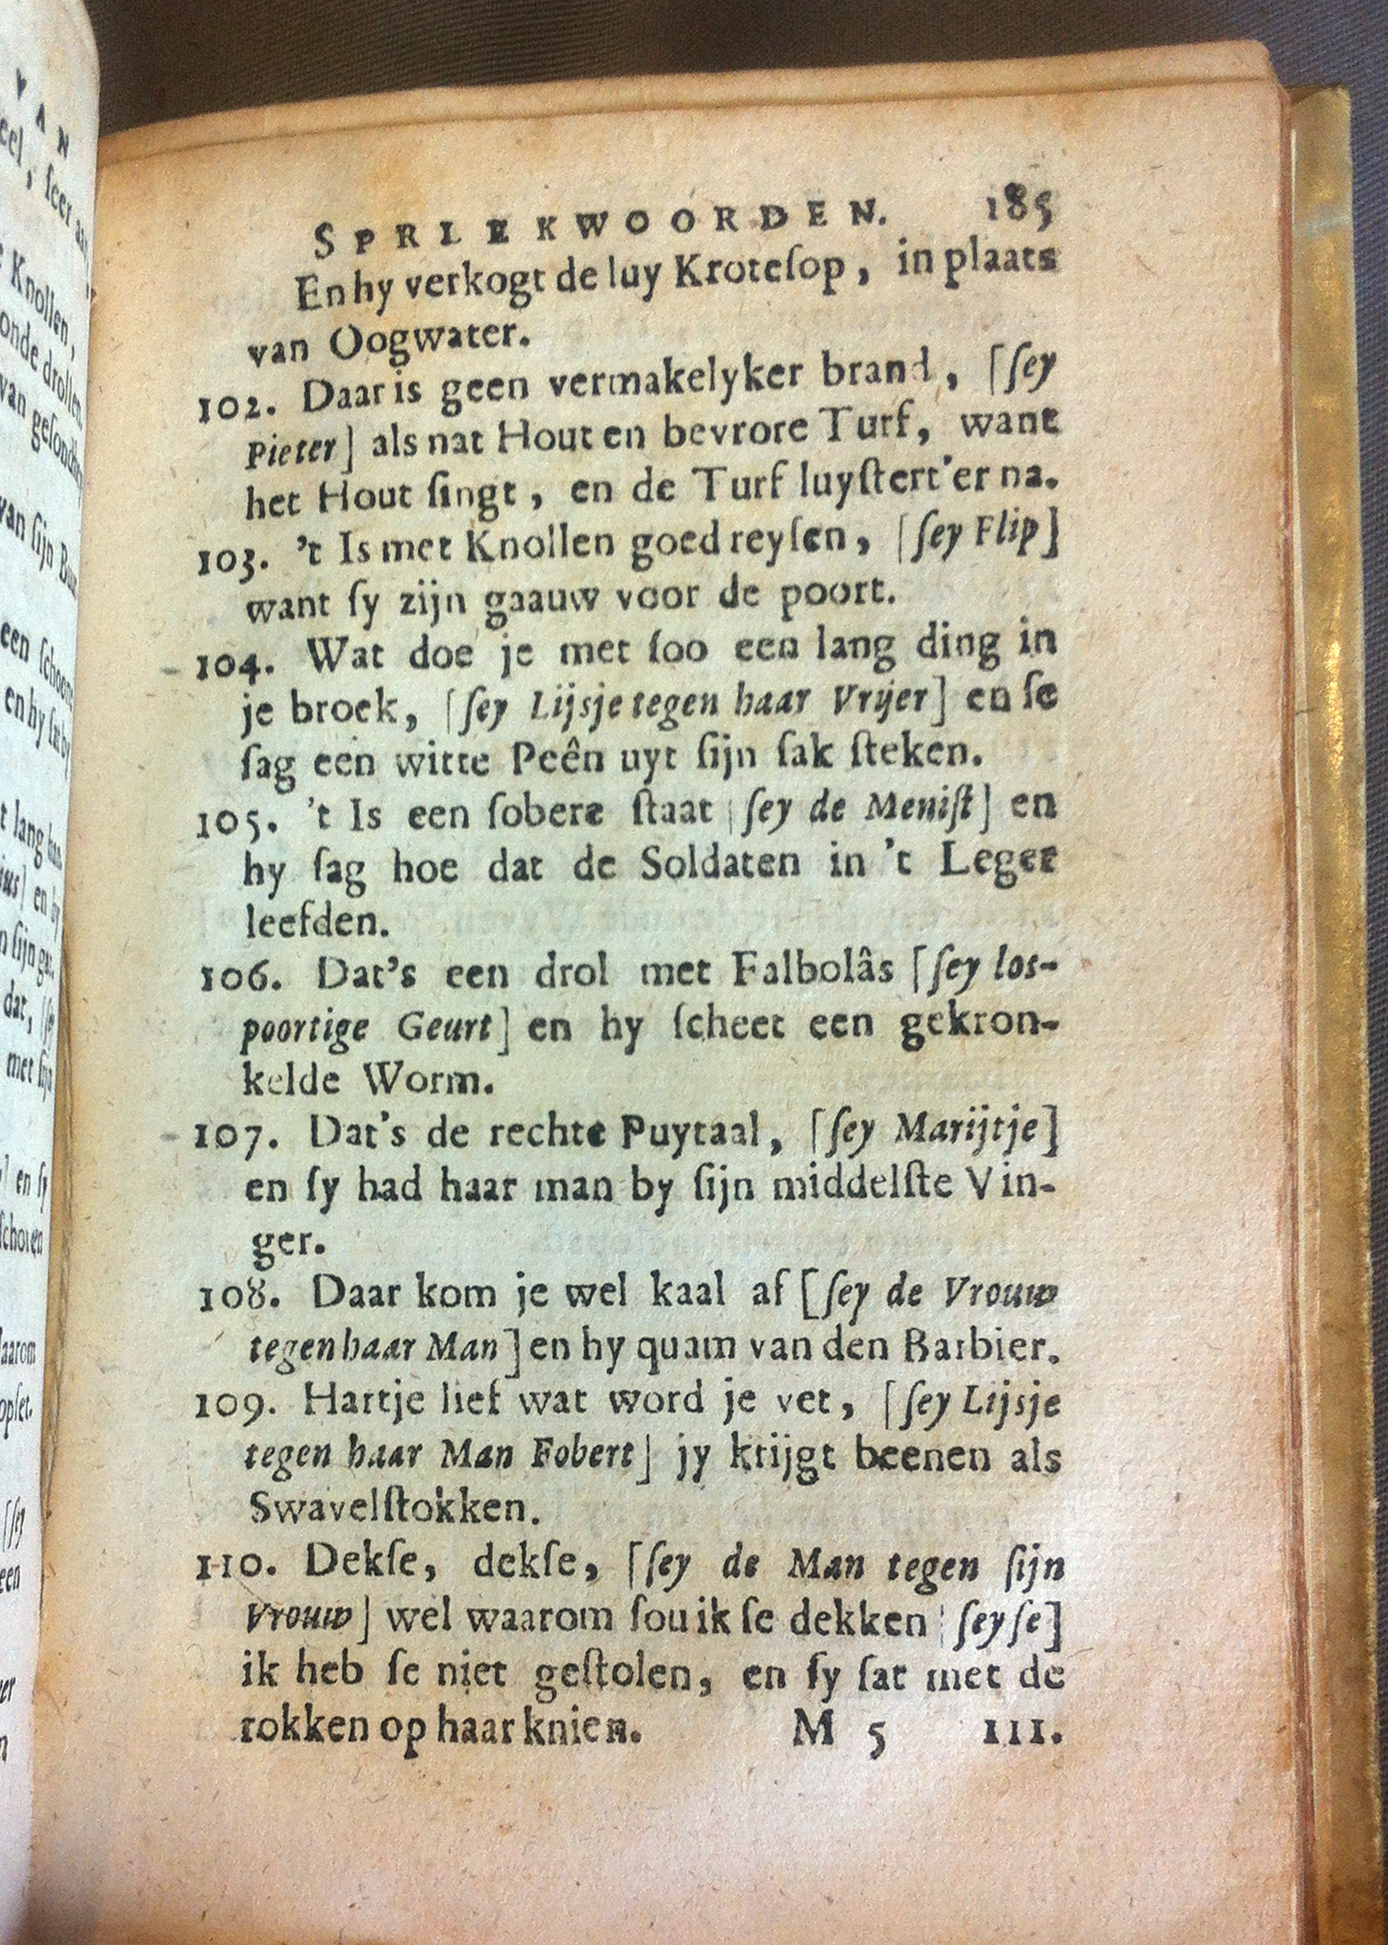 VAN
eel, ſeer aan
Knollen,
onde drollen
van geſondh
van ſijn
een ſchoens
en hy
t lang
ius] en hy
n ſijn
dat, [ſey
met ſijn
en ſy
ſchoten
aarom
opſet.
[ſey
een
SPRLEKWOORDEN. 185
En hy verkogt de luy Kroteſop, in plaats
van Oogwater.
102. Daar is geen vermakelyker brand, [ſey
Pieter] als nat Hout en bevrore Turf, want
het Hout ſingt, en de Turf luyſtert'er na.
103. 't Is met Knollen goed reyſen, [ſey Flip]
want ſy zijn gaauw voor de poort.
104. Wat doe je met ſoo een lang ding in
je broek, [ſey Lijsje tegen haar Vrijer] en ſe
ſag een witte Peên uyt ſijn ſak ſteken.
105. 't Is een ſobere ſtaat [ſey de Meniſt] en
hy ſag hoe dat de Soldaten in 't Leger
leefden.
106. Dat's een drol met Falbolâs [ſey los-
poortige Geurt] en hy ſcheet een gekron-
kelde Worm.
107. Dat's de rechte Puytaal, [ſey Marijtje]
en ſy had haar man by ſijn middelſte Vin-
ger.
108. Daar kom je wel kaal af [ſey de Vrouw
tegen haar Man] en hy quam van den Barbier.
109. Hartje lief wat word je vet, [ſey Lijsje
tegen haar Man Fobert] jy krijgt beenen als
Swavelſtokken.
110. Dekſe, dekſe, [ſey de Man tegen ſijn
Vrouw] wel waarom ſou ik ſe dekken [ſey ſe]
ik heb ſe niet geſtolen, en ſy ſat met de
rokken op haar knien. M 5 111.